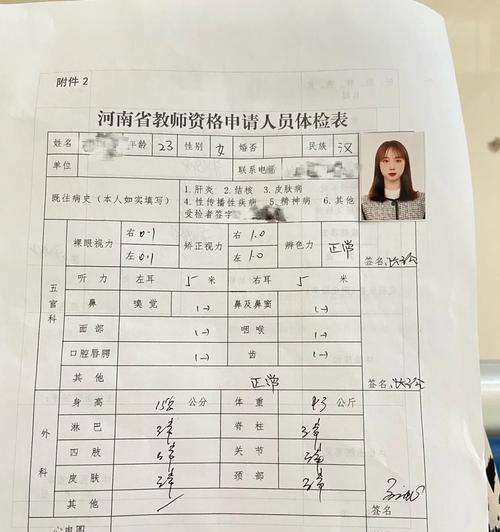 附件2
河南省教师资格申请人员体检表
姓名 年龄 23 性别 女 婚否 民族 汉
单位 联系电话
既往病史（本人如实填写） 1.肝炎 2.结核 3.皮肤病
4.性传播性疾病 5.精神病 6.其他
受检者签字
五官科 裸眼视力 右 0.1 矫正视力 右 1.0 辨色力 正常
左 0.1 左 1.0 签名
听力 左耳 5 米 右耳 5 米
鼻 嗅觉 (-) 鼻及鼻窦 (-)
面部 (-) 咽喉 (-)
口腔唇腭 (-) 齿 (-)
其他 正常 签名
外科 身高 152 公分 体重 43 公斤
淋巴 正常 脊柱 正常
四肢 正常 关节 正常
皮肤 正常 颈部 正常
其他 签名
心电图